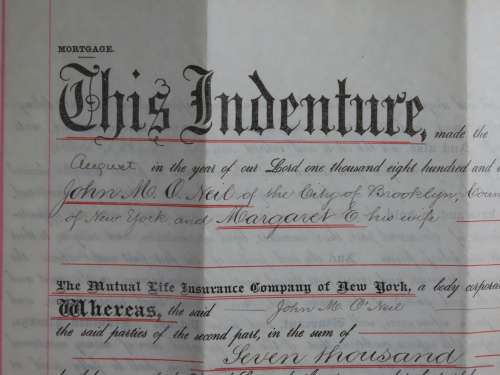 MORTGAGE.
This Indenture, made the
August in the year of our Lord one thousand eight hundred and
John M. O'Neil of the City of Brooklyn,
of New York and Margaret E. his wife
And
The Mutual Life Insurance Company of New York, a body
Whereas, the said John M. O'Neil
the said parties of the second part, in the sum of
Seven thousand